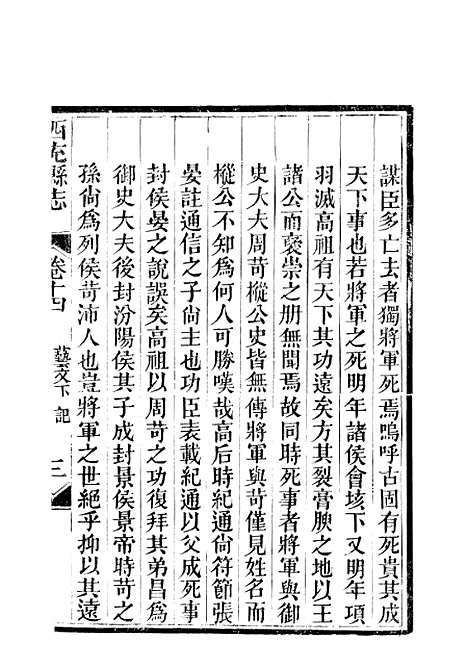 謀臣多亡去者獨將軍死焉嗚呼古固有死貴其成
天下事也若將軍之死明年諸侯會垓下又明年項
羽滅高祖有天下其功遠矣方其裂膏腴之地以王
諸公而褒崇之册無聞焉故同時死事者將軍與御
史大夫周苛樅公史皆無傳將軍與苛僅見姓名而
樅公不知為何人可勝嘆哉高后時紀通尙符節張
晏註通信之子尙主也功臣表載紀通以父成死事
封侯晏之說誤矣高祖以周苛之功復拜其弟昌為
御史大夫後封汾陽侯其子成封景侯景帝時苛之
孫尙為列侯苛沛人也豈將軍之世絕乎抑以其遠
西充縣志 卷十四 藝文下 記 三